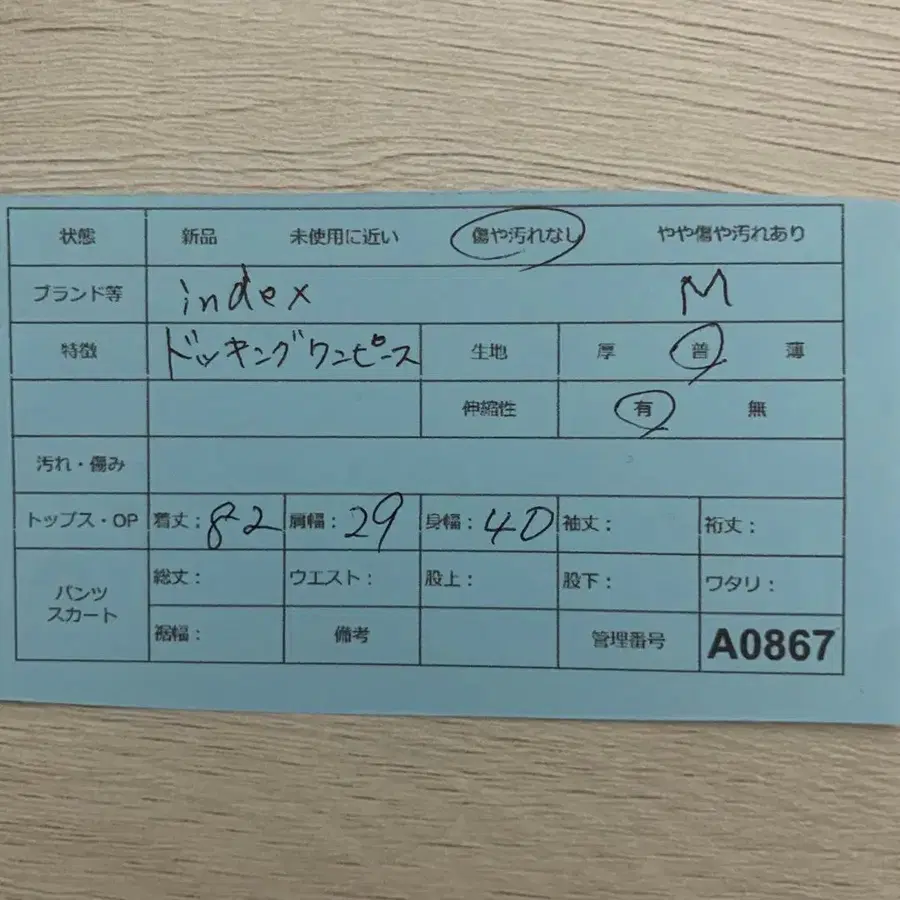 状態 新品 未使用に近い 傷や汚れなし やや傷や汚れあり
ブランド等 index M
特徴 ドッキングワンピース 生地 厚 普 薄
伸縮性 有 無
汚れ・傷み
トップス・OP 着丈：82 肩幅：29 身幅：40 袖丈： 裄丈：
パンツ スカート 総丈： ウエスト： 股上： 股下： ワタリ：
裾幅： 備考 管理番号 A0867